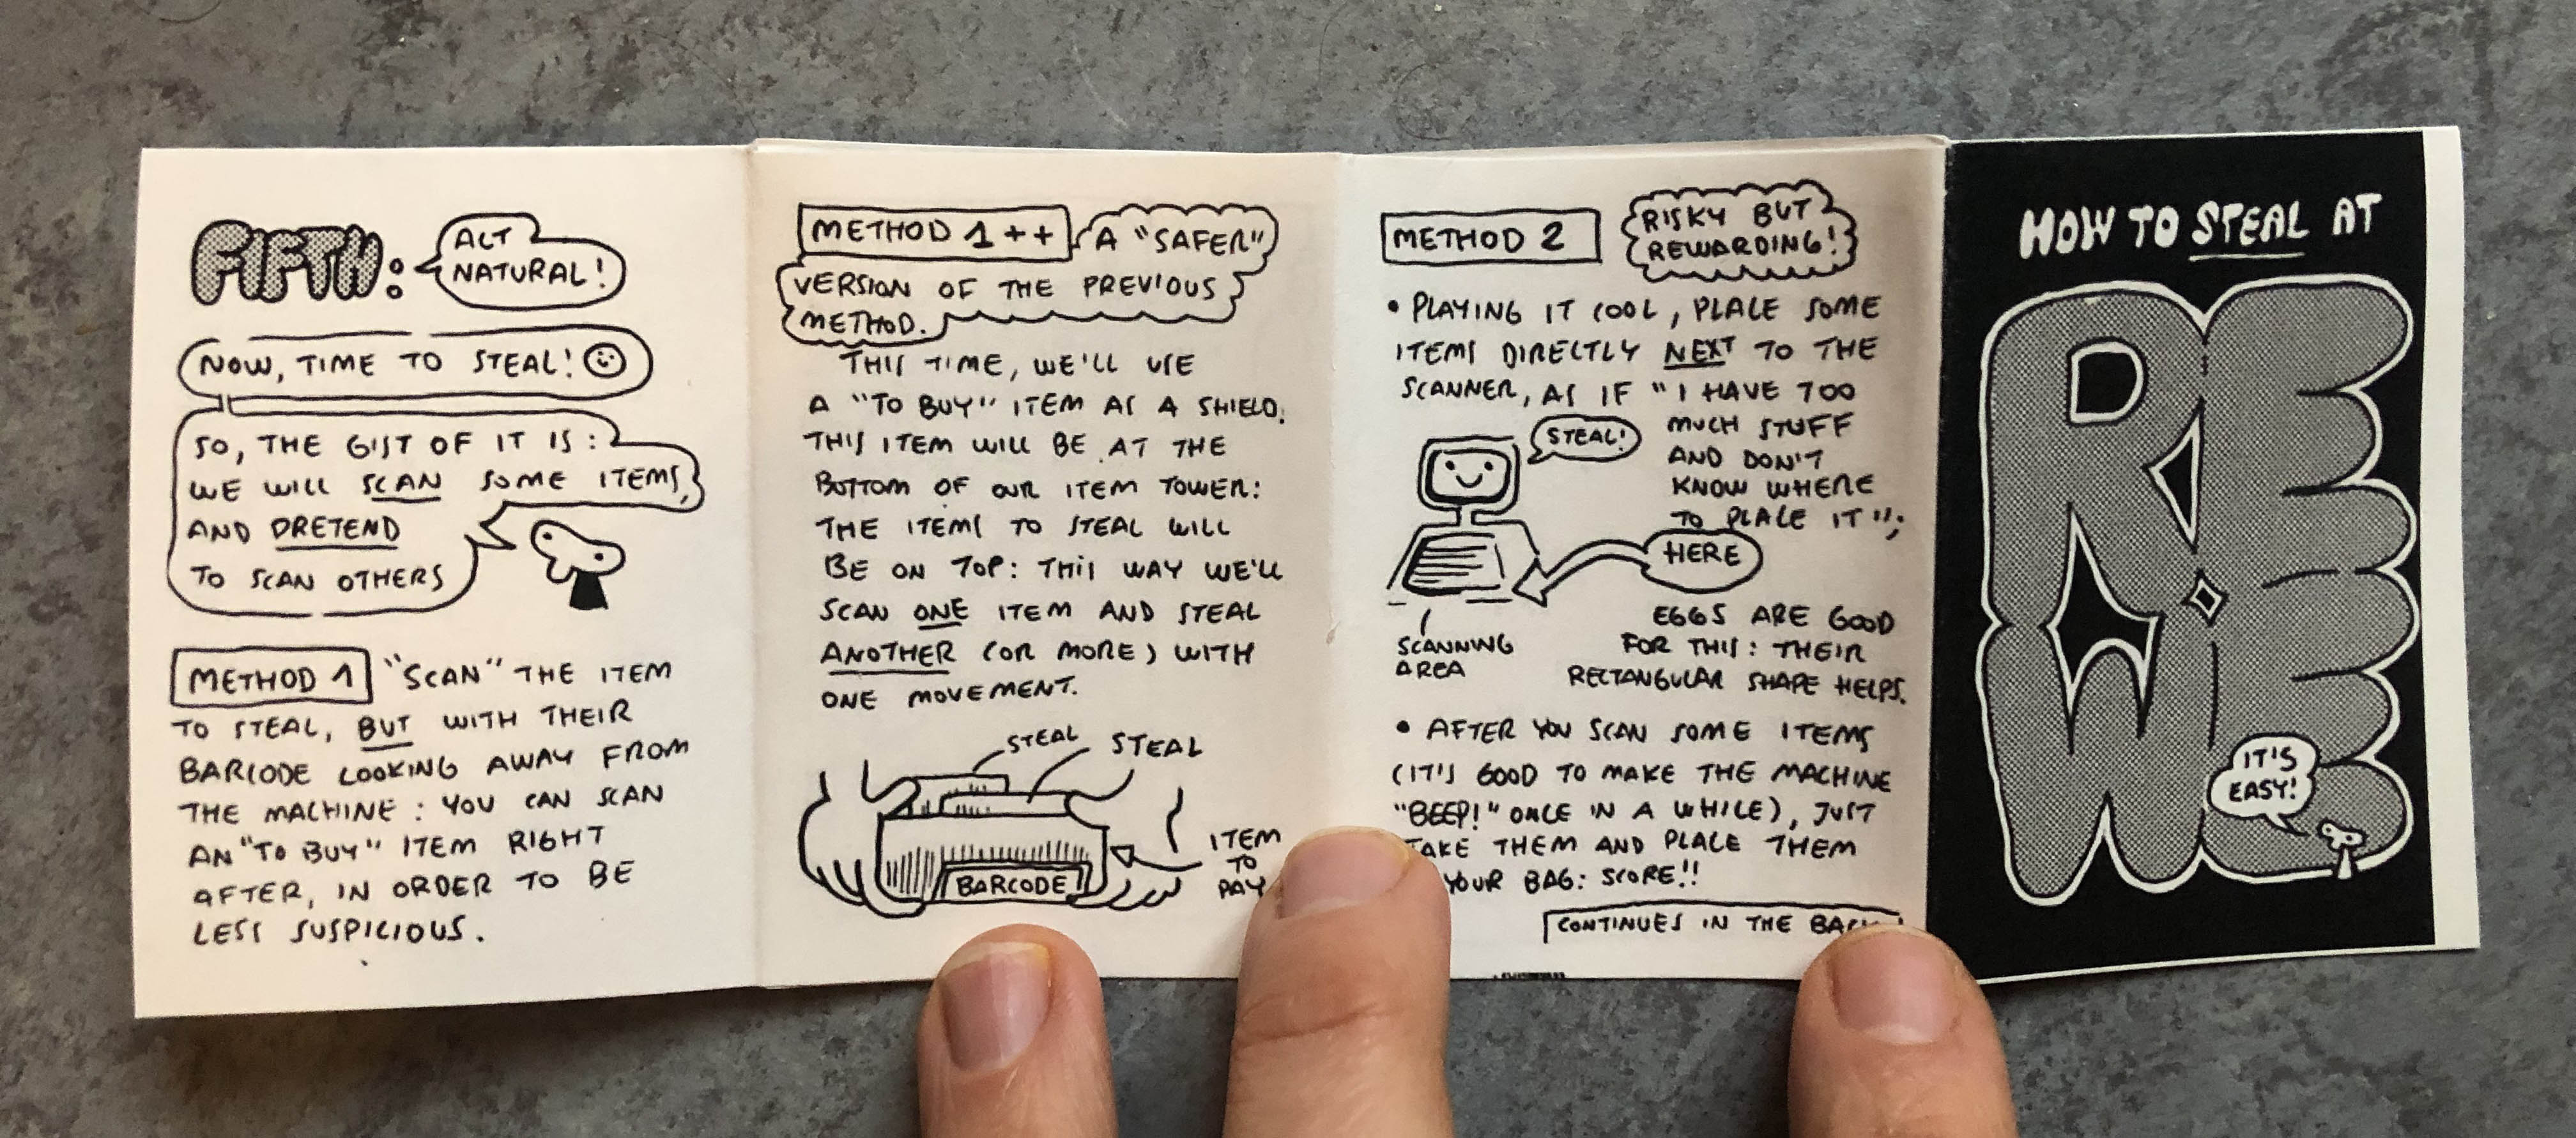 FIFTH:
ACT
NATURAL!
NOW, TIME TO STEAL!
SO, THE GIST OF IT IS:
WE WILL SCAN SOME ITEMS,
AND PRETEND
TO SCAN OTHERS
METHOD 1 "SCAN" THE ITEM
TO STEAL, BUT WITH THEIR
BARCODE LOOKING AWAY FROM
THE MACHINE: YOU CAN SCAN
AN "TO BUY" ITEM RIGHT
AFTER, IN ORDER TO BE
LESS SUSPICIOUS.
METHOD 1++ A "SAFER"
VERSION OF THE PREVIOUS
METHOD.
THIS TIME, WE'LL USE
A "TO BUY" ITEM AS A SHIELD.
THIS ITEM WILL BE AT THE
BOTTOM OF OUR ITEM TOWER:
THE ITEMS TO STEAL WILL
BE ON TOP: THIS WAY WE'LL
SCAN ONE ITEM AND STEAL
ANOTHER (OR MORE) WITH
ONE MOVEMENT.
STEAL STEAL
BARCODE
ITEM
TO
PAY
METHOD 2
RISKY BUT
REWARDING!
• PLAYING IT COOL, PLACE SOME
ITEMS DIRECTLY NEXT TO THE
SCANNER, AS IF "I HAVE TOO
MUCH STUFF
AND DON'T
KNOW WHERE
TO PLACE IT";
STEAL!
HERE
SCANNING
AREA
EGGS ARE GOOD
FOR THIS: THEIR
RECTANGULAR SHAPE HELPS.
• AFTER YOU SCAN SOME ITEMS
(IT'S GOOD TO MAKE THE MACHINE
"BEEP!" ONCE IN A WHILE), JUST
TAKE THEM AND PLACE THEM
YOUR BAG: SCORE!!
CONTINUES IN THE BACK!
HOW TO STEAL AT
RE
WE
IT'S
EASY!